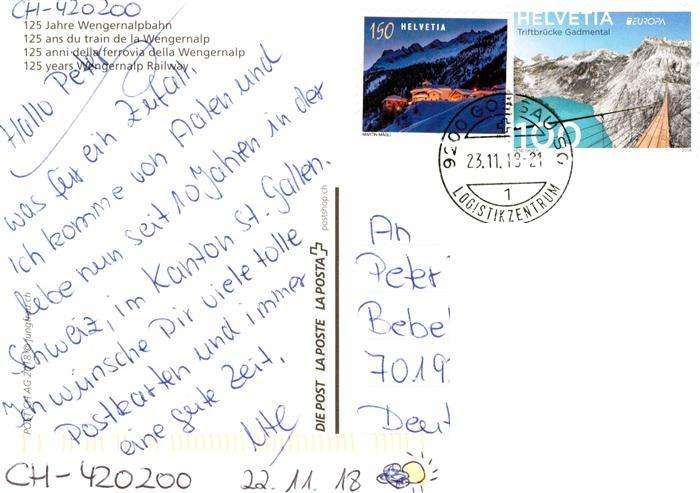 CH-420200
125 Jahre Wengernalpbahn
125 ans du train de la Wengernalp
125 anni della ferrovia della Wengernalp
125 years Wengernalp Railway
Hallo Peter
was für ein Zufall.
Ich komme von Aalen und
lebe nun seit 10 Jahren in der
Schweiz, im Kanton St. Gallen.
Ich wünsche Dir viele tolle
Postkarten und immer
eine gute Zeit.
Ute
CH-420200 22.11.18
DIE POST LA POSTE LA POSTA
postshop.ch
150 HELVETIA
HELVETIA EUROPA
Triftbrücke Gadmental
100
9200 GOSSAU SG
23.11.18-21
1
LOGISTIKZENTRUM
An
Peter
Bebe
7019
Deut